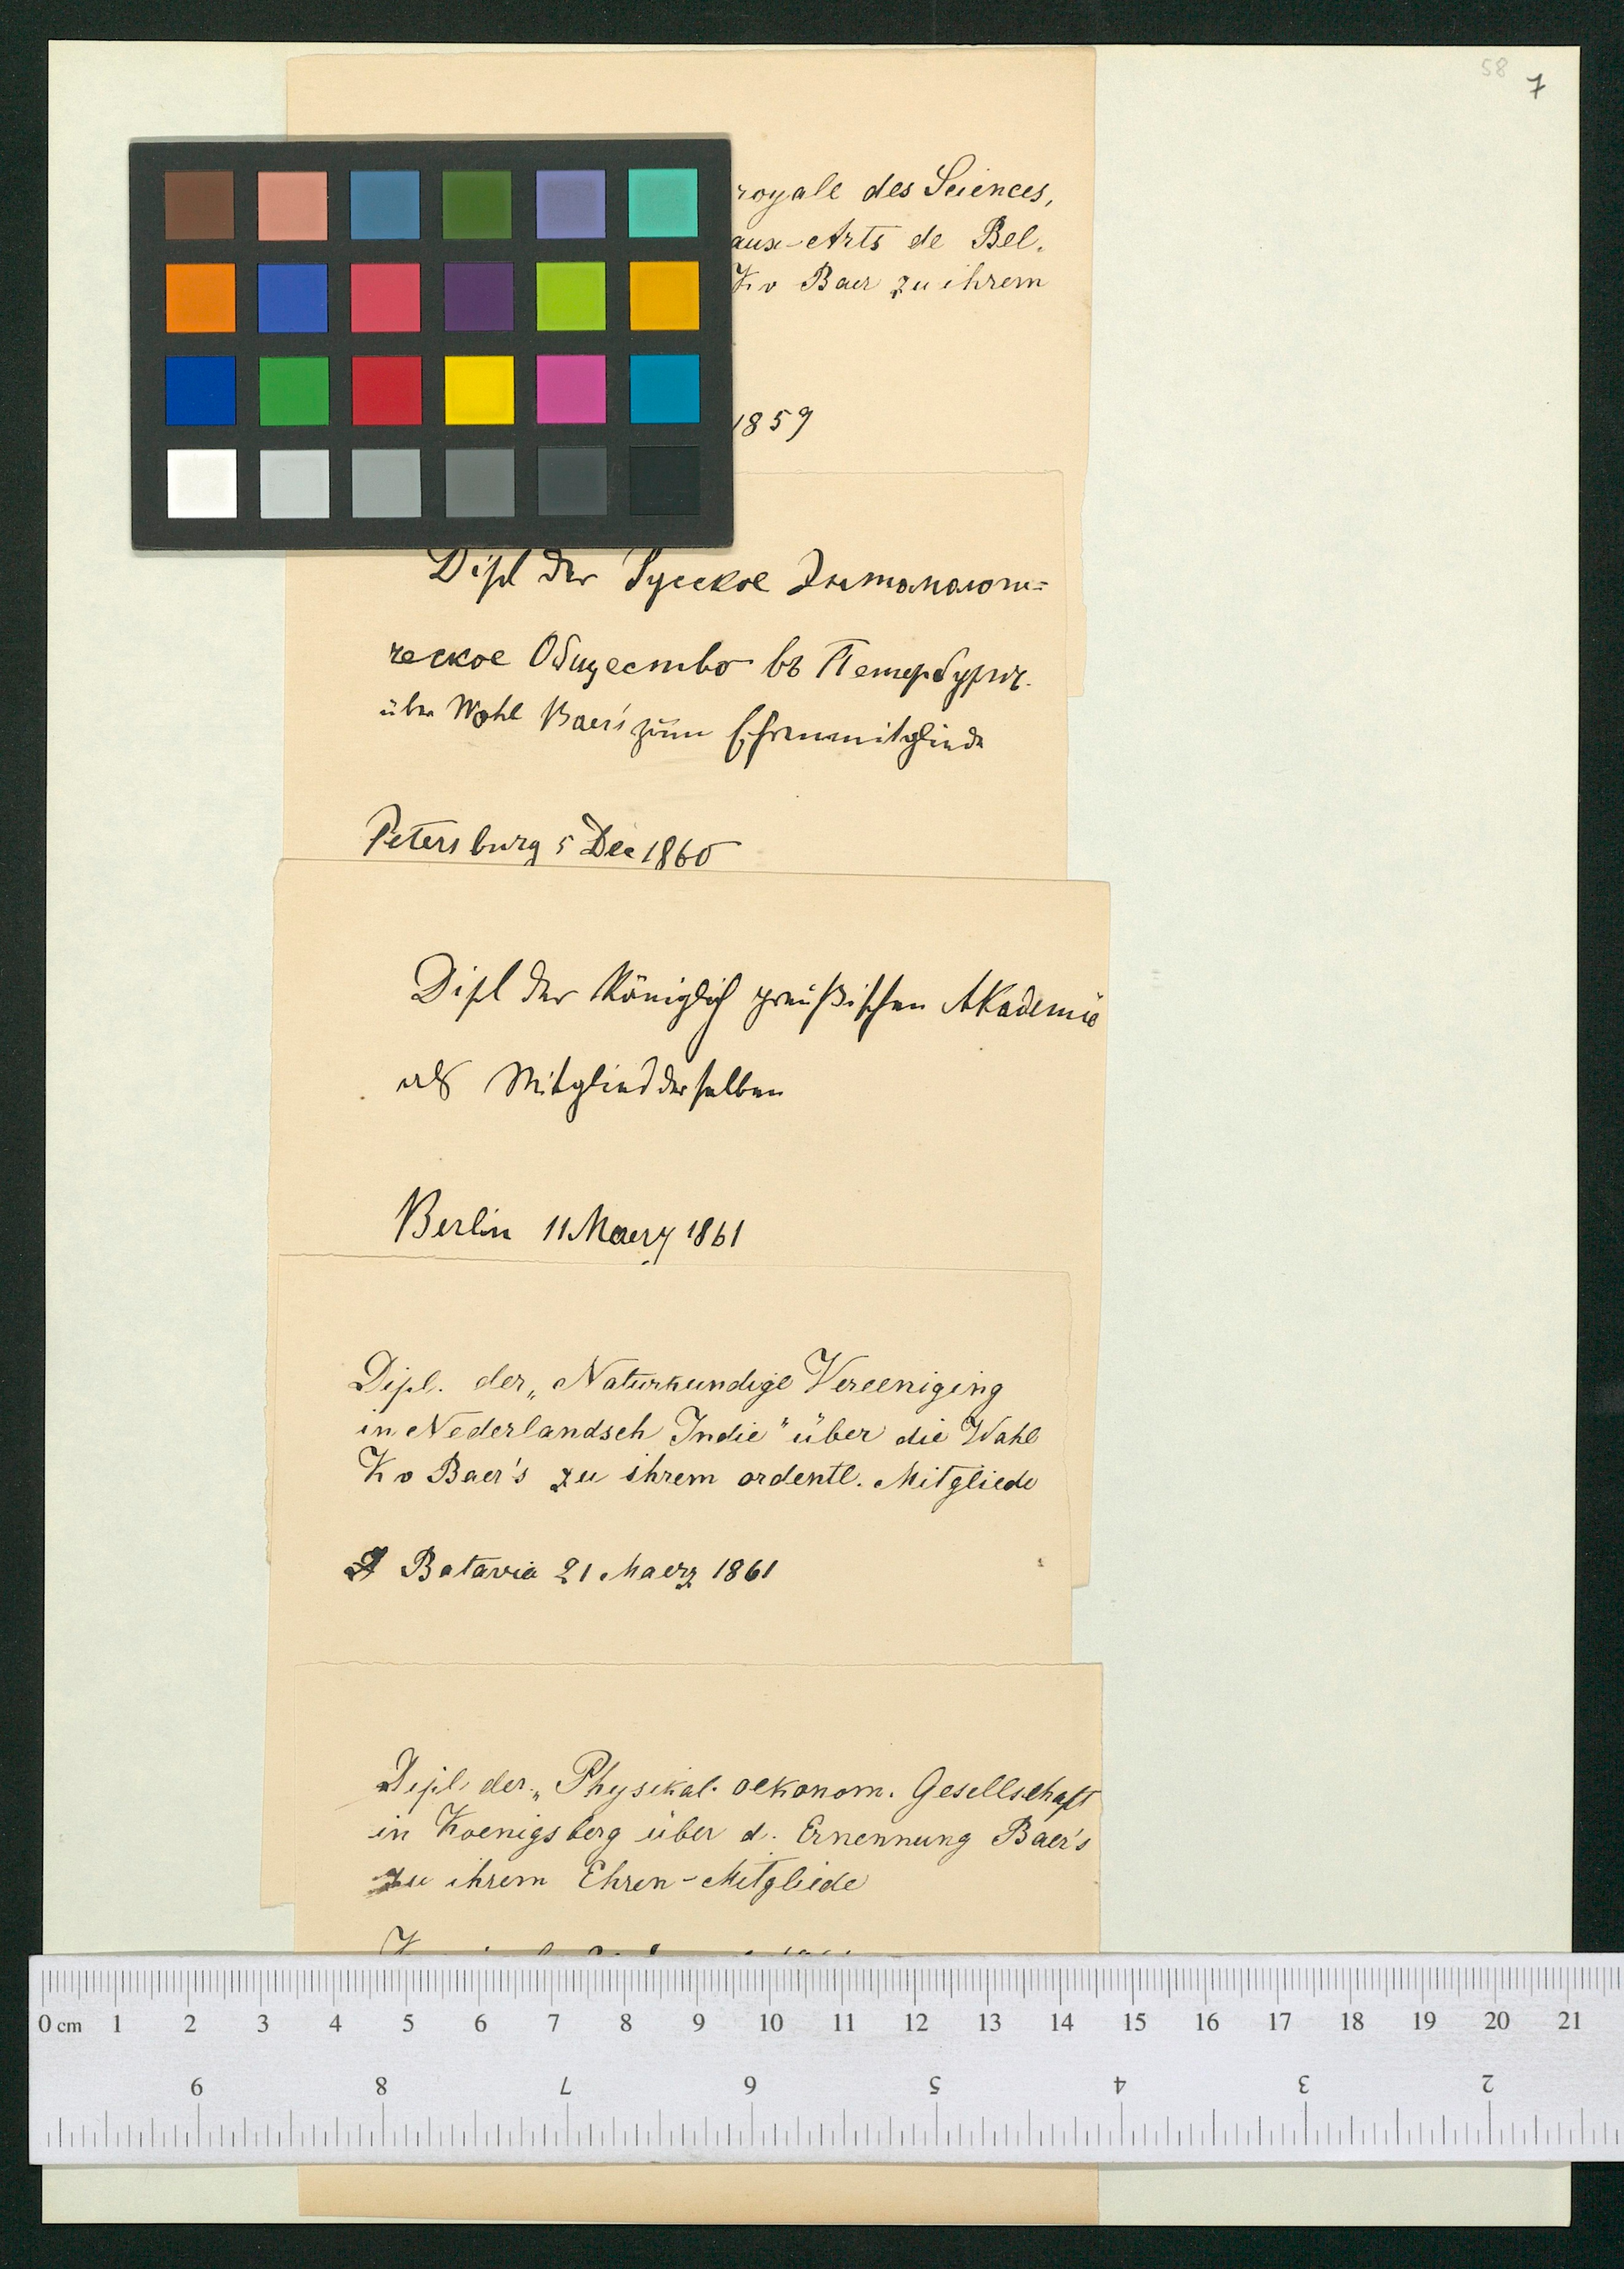 58 7
royale des Sciences,
aux-Arts de Bel.
K v Baer zu ihrem
1859
Dipl der Русское Энтомологи=
ческое Общество въ Петербургѣ
über Wahl Baer's zum Ehrenmitgliede
Petersburg 5 Dec 1860
Dipl der Königlich preußischen Akademie
als Mitglied derselben
Berlin 11 Maerz 1861
Dipl. der „Naturkundige Vereeniging
in Nederlandsch Indie" über die Wahl
K v Baer's zu ihrem ordentl. Mitgliede
Batavia 21 Maerz 1861
Dipl. der „Physikal. oekonom. Gesellschaft
in Koenigsberg über d. Ernennung Baer's
zu ihrem Ehren-Mitgliede
0 cm 1 2 3 4 5 6 7 8 9 10 11 12 13 14 15 16 17 18 19 20 21
9 8 7 6 5 4 3 2